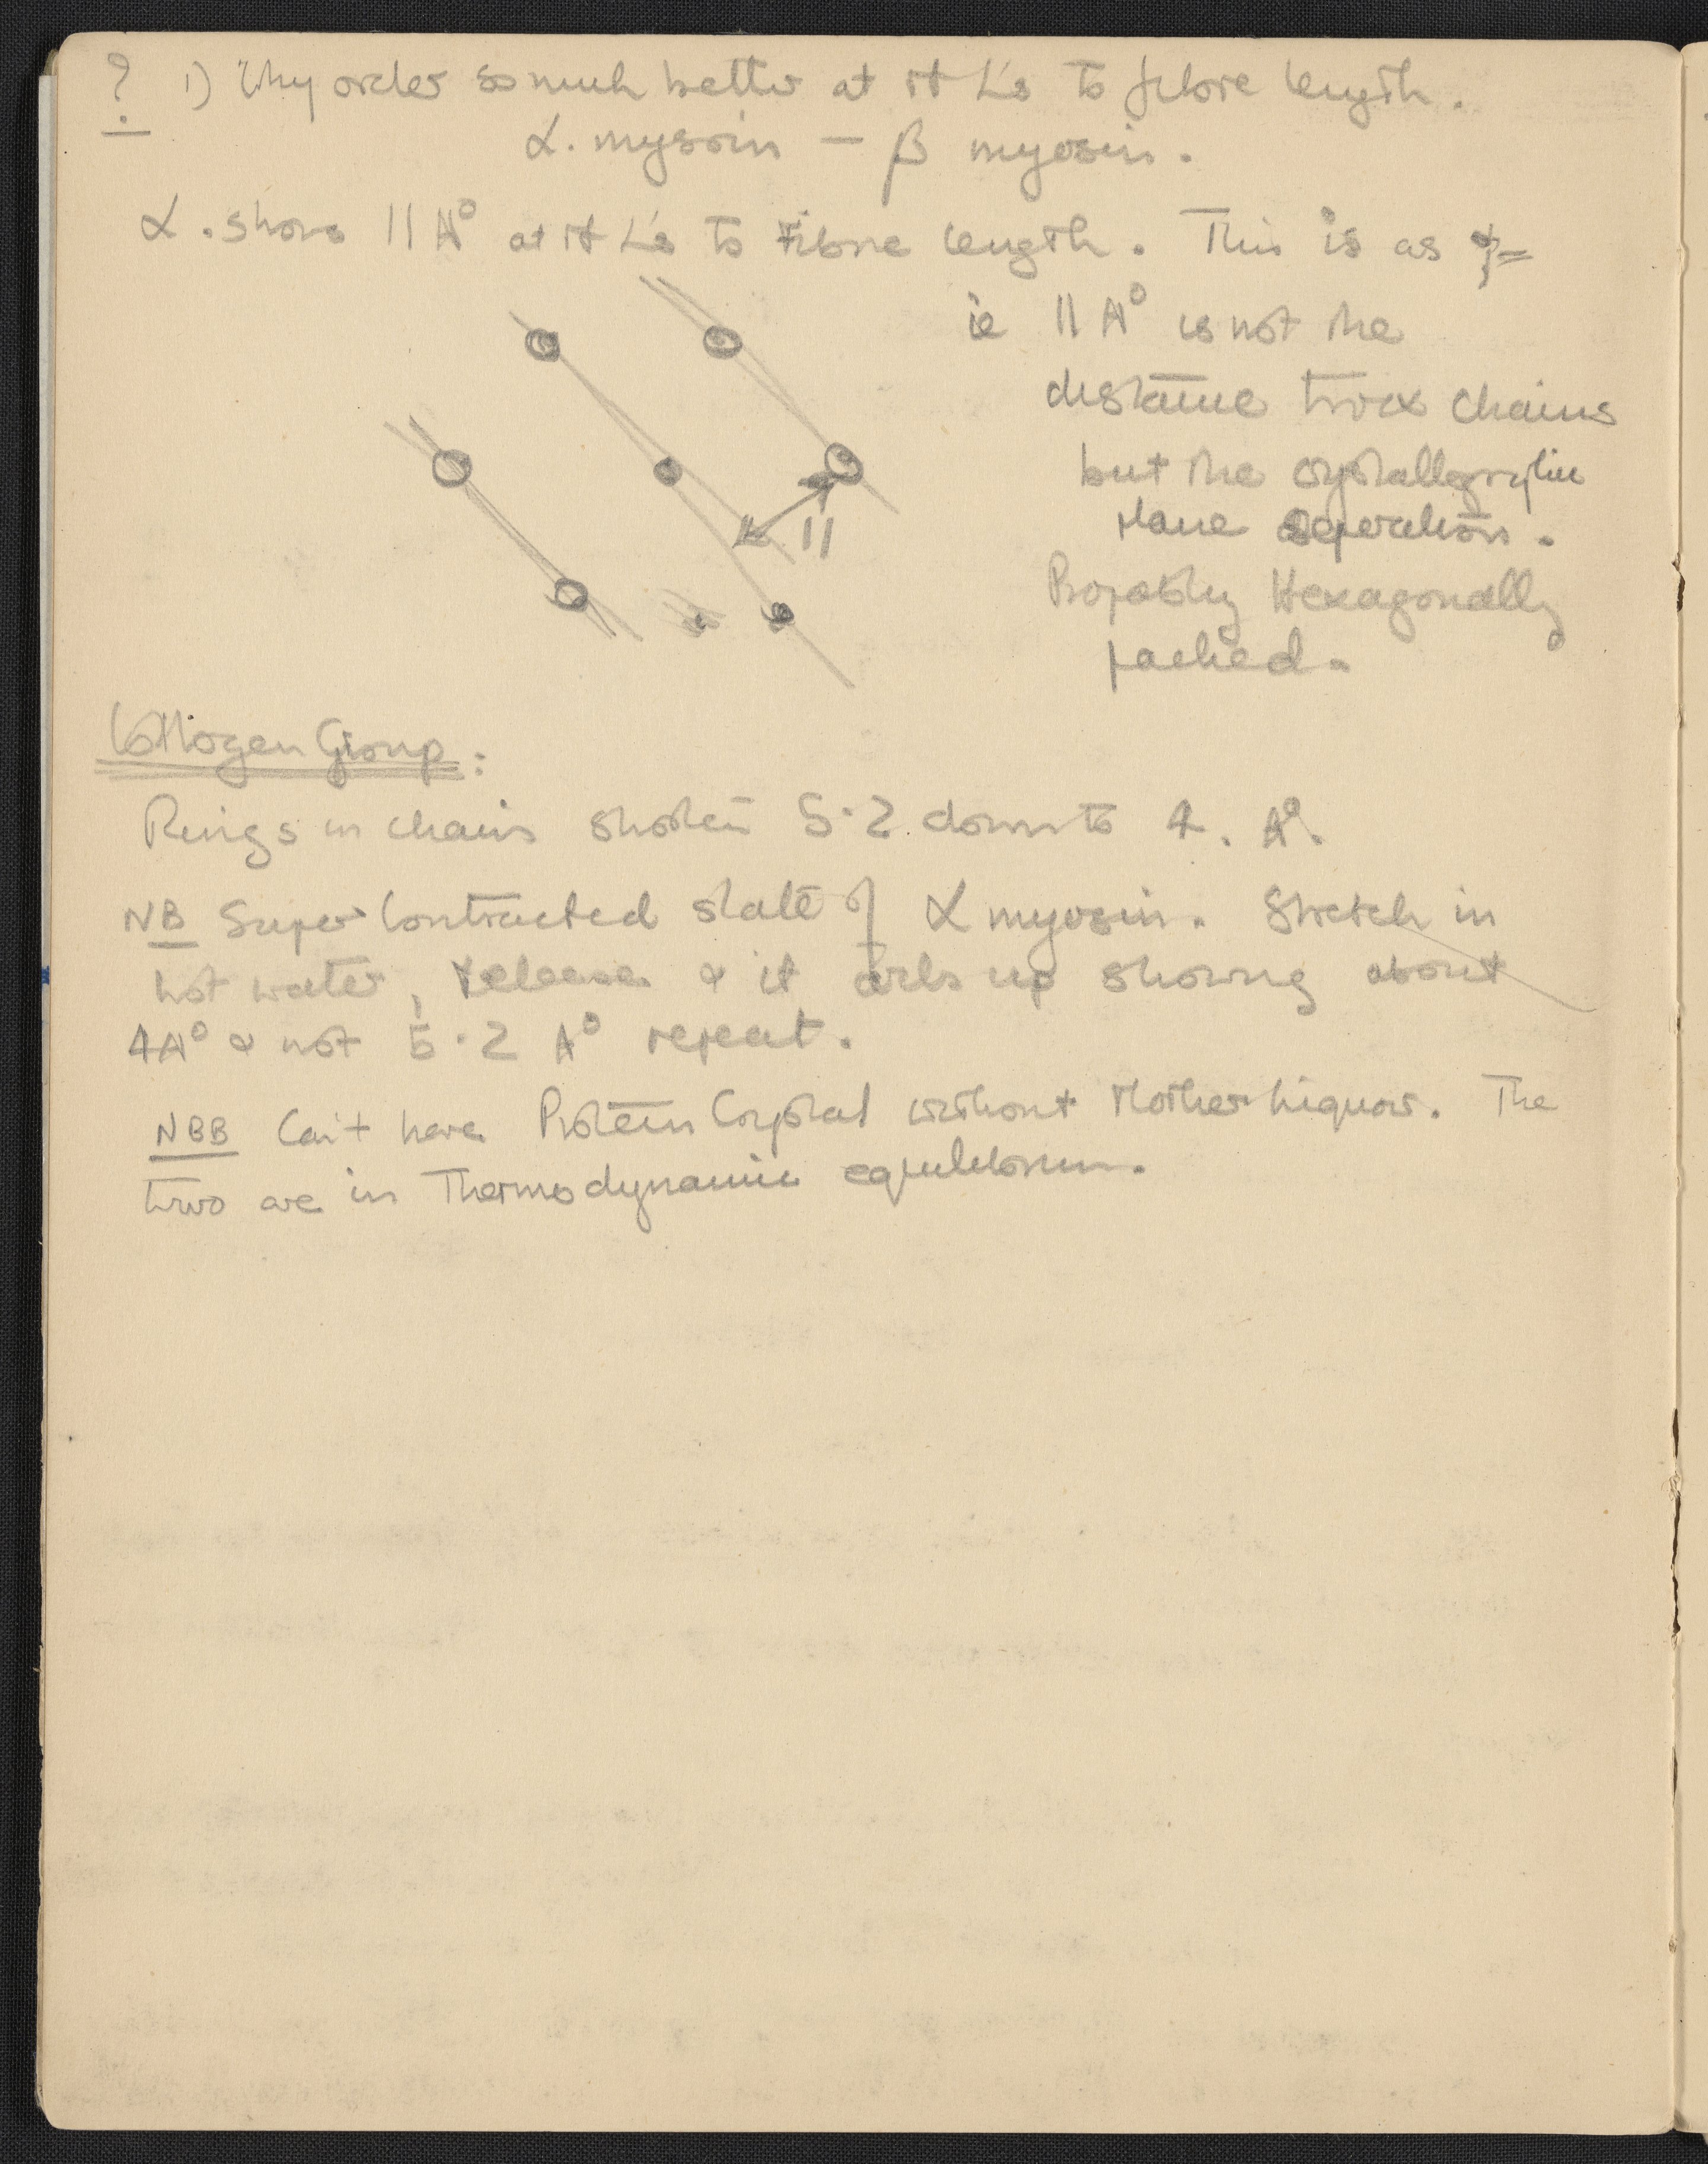 ? 1) Why order so much better at rt L's to fibre length.
α. mysoin — β myosin.
α. shows 11 A° at rt L's to Fibre length. This is as
ie 11 A° is not the
distance twix chains
but the crystallographic
plane seperation.
11
Propably Hexagonally
packed.
Collogen Group:
Rings in chains shorten 5.2 down to 4. A°.
NB Super Contracted state of α myosin. Stretch in
hot water, release & it curls up showing about
4A° & not 5.2 A° repeat.
NBB Can't have Protein Crystal without Mother liquor. The
two are in Thermodynamic equilibrium.